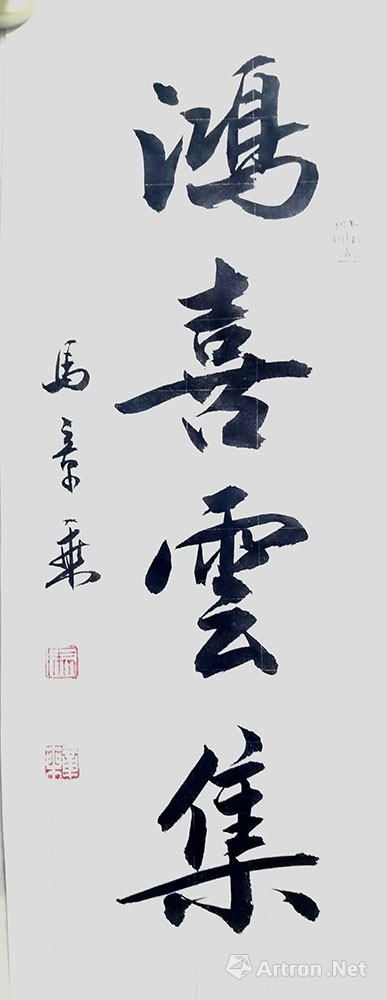 鴻喜雲集
馬章乘
Artron.Net